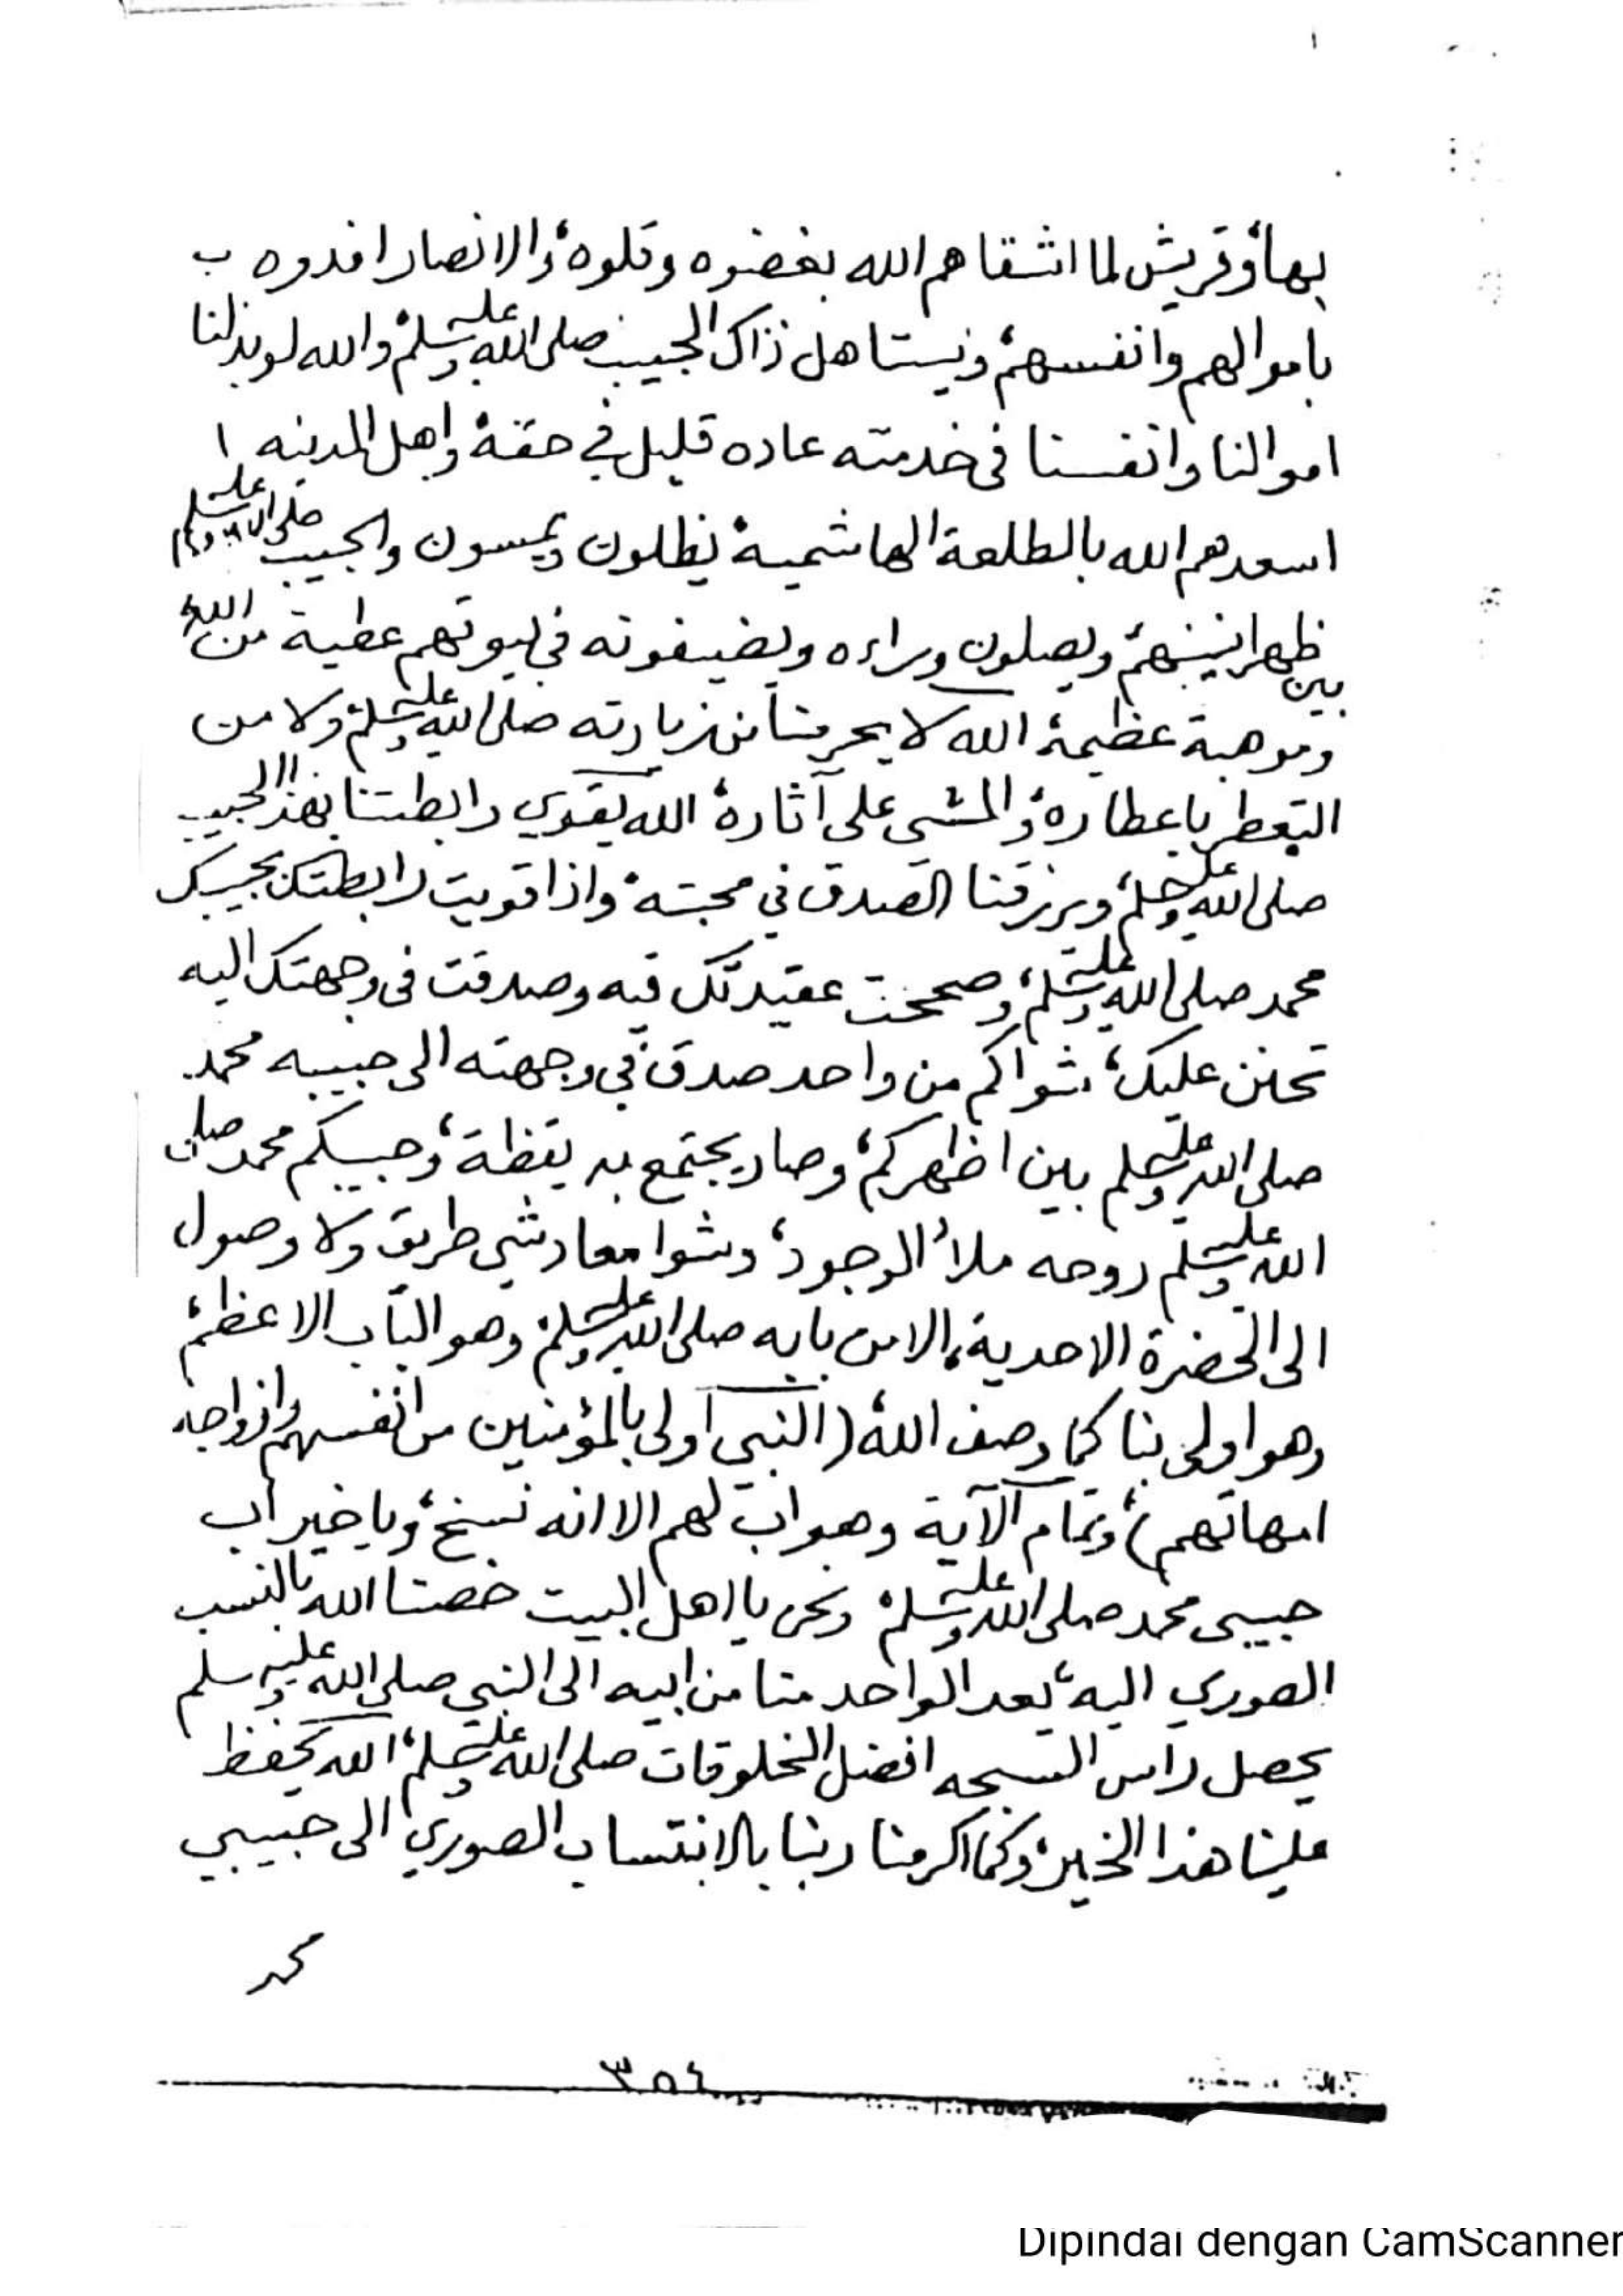 بها، وقريش لما اشقاهم الله بغضوه وقلوه، والانصار افدوه ب
باموالهم وانفسهم، ويستاهل ذاك الحبيب صلى الله عليه وسلم، والله لو بذلنا
اموالنا وانفسنا في خدمته عاده قليل في حقه، واهل المدينه ا
اسعدهم الله بالطلعة الهاشمية، يظلون ويمسون والحبيب صلى الله عليه وسلم
بين ظهرانينهم، ويصلون وراءه ويضيفونه في بيوتهم عطية من الله،
وموهبة عظيمة، الله لا يحرمنا من زيارته صلى الله عليه وسلم، ولا من
التعطر باعطاره، والمشي على آثاره، الله يقوي رابطتنا بهذا الحبيب
صلى الله عليه وسلم، ويرزقنا الصدق في محبته، واذا قويت رابطتك بحبيبك
محمد صلى الله عليه وسلم، وصححت عقيدتك فيه وصدقت في وجهتك اليه
تحنن عليك، شوا كم من واحد صدق في وجهته الى حبيبه محمد
صلى الله عليه وسلم بين اظهركم، وصار يجتمع به يقظة، وحبيبكم محمد صلى
الله عليه وسلم روحه ملأ الوجود، وشوا معاد شي طريق ولا وصول
الى الحضرة الاحدية، الا من بابه صلى الله عليه وسلم، وهو الباب الاعظم،
وهو اولى بنا كما وصف الله، (النبي اولى بالمؤمنين من انفسهم وازواجه
امهاتهم)، وتمام الآية وهو اب لهم الا انه نسخ، ويا خير اب
حبيبي محمد صلى الله عليه وسلم، ونحن يا اهل البيت خصنا الله بالنسب
الصوري اليه، يعد الواحد منا من ابيه الى النبي صلى الله عليه وسلم
يحصل راس السبحه افضل المخلوقات صلى الله عليه وسلم، الله يحفظ
علينا هذا الخير، وكما اكرمنا ربنا بالانتساب الصوري الى حبيبي
محمد
٣٥٤
Dipindai dengan CamScanner